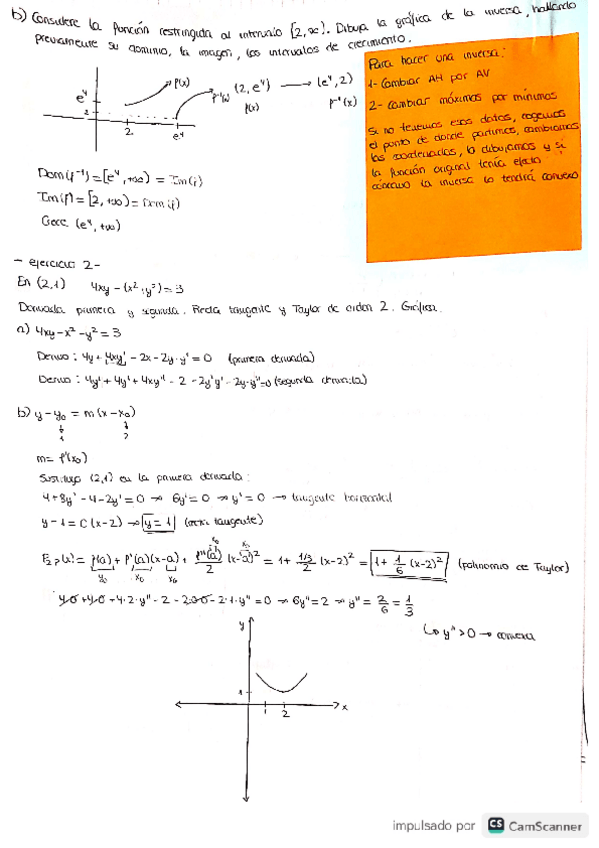 b) Considere la función restringida al intervalo [2,∞). Dibuja la gráfica de la inversa, hallando
previamente su dominio, la imagen, los intervalos de crecimiento.
Para hacer una inversa:
1- Cambiar AH por AV
2- Cambiar máximos por mínimos
Si no tenemos esos datos, cogemos
el punto de donde partimos, cambiamos
las coordenadas, lo dibujamos y si
la función original tenía efecto
cóncavo la inversa lo tendrá convexo
e⁴
2
2
e⁴
f(x)
f⁻¹(x)
(2, e⁴) → (e⁴, 2)
f(x) f⁻¹(x)
Dom(f⁻¹) = [e⁴, +∞) = Im(f)
Im(f) = [2, +∞) = Dom(f)
Crece (e⁴, +∞)
- ejercicio 2 -
En (2,1) 4xy - (x², y²) = 3
Derivada primera y segunda. Recta tangente y Taylor de orden 2. Gráfica.
a) 4xy - x² - y² = 3
Derivo: 4y + 4xy' - 2x - 2y·y' = 0 (primera derivada)
Derivo: 4y' + 4y' + 4xy'' - 2 - 2y'y' - 2y·y''=0 (segunda derivada)
b) y - y₀ = m(x - x₀)
1 2
m = f'(x₀)
Sustituyo (2,1) en la primera derivada:
4 + 8y' - 4 - 2y' = 0 → 6y' = 0 → y' = 0 → tangente horizontal
y - 1 = 0 (x-2) → y = 1 (recta tangente)
P₂,₂(x) = f(a) + f'(a)(x-a) + f''(a)/2 (x-a)² = 1 + 1/3/2 (x-2)² = 1 + 1/6 (x-2)² (polinomio de Taylor)
y₀ x₀ x₀ x₀ x₀
4·0 + 4·0 + 4·2·y'' - 2 - 2·0·0 - 2·1·y'' = 0 → 6y'' = 2 → y'' = 2/6 = 1/3
↳ y'' > 0 → convexa
y
1
1 2
x
impulsado por CS CamScanner